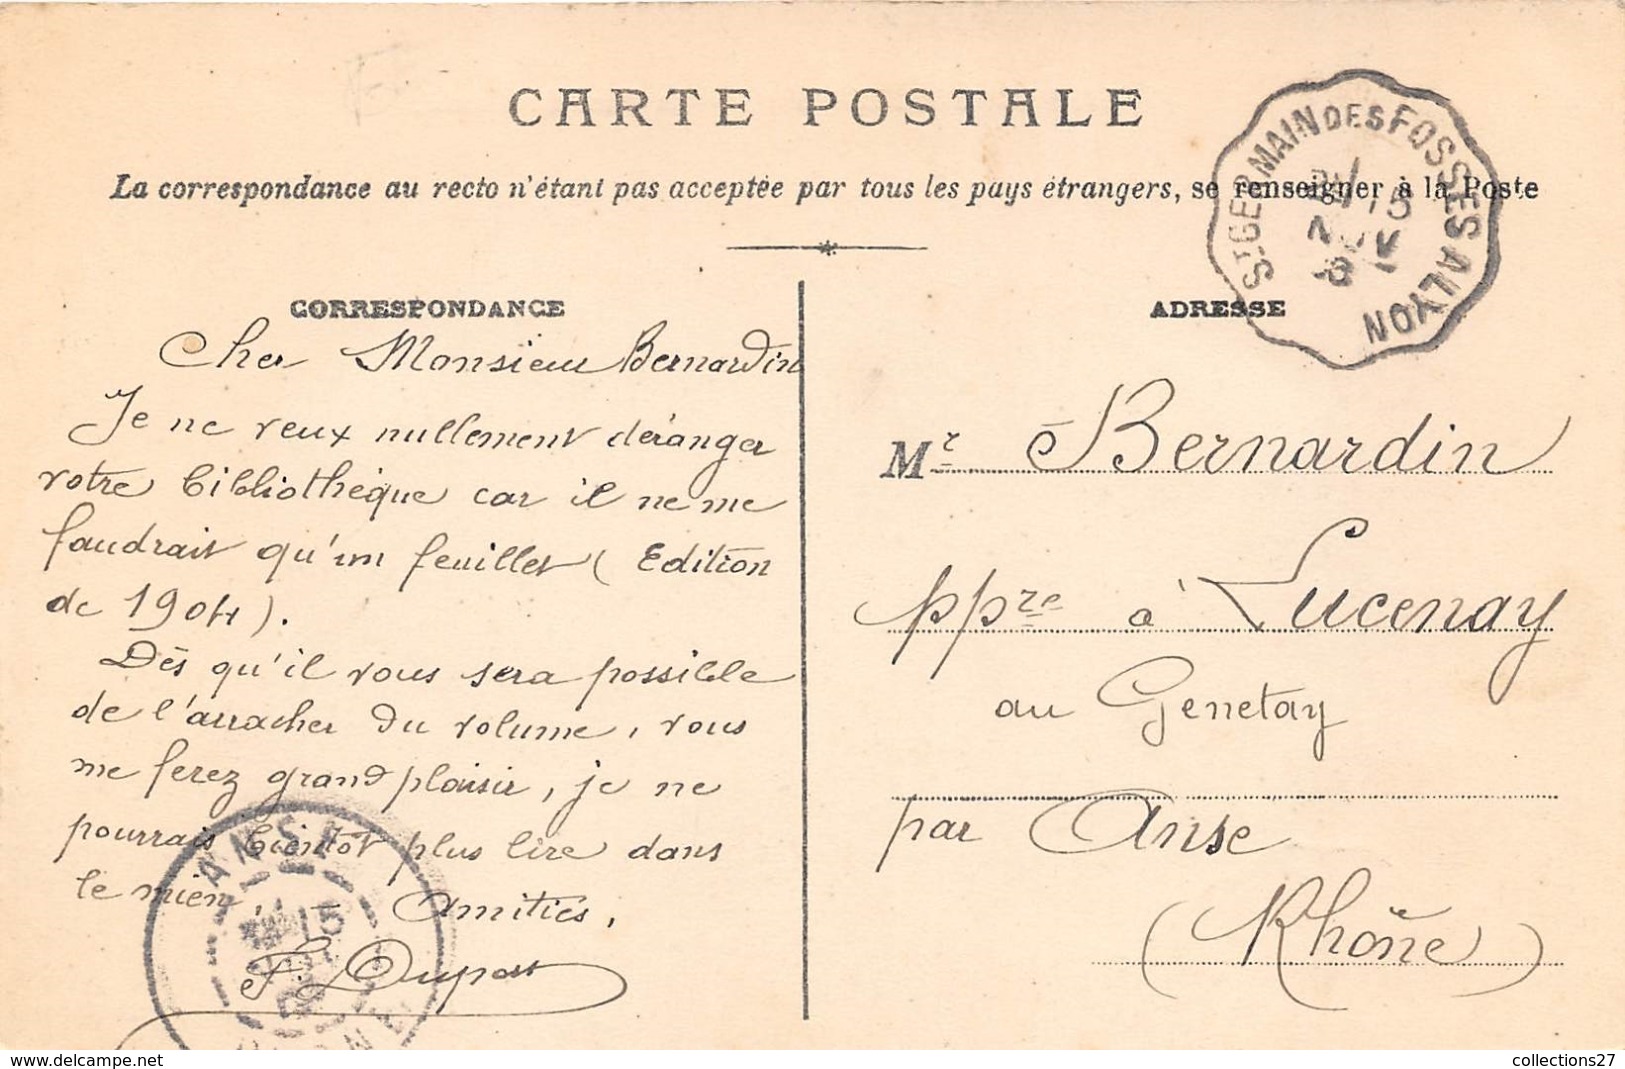 CARTE POSTALE
La correspondance au recto n'étant pas acceptée par tous les pays étrangers, se renseigner à la Poste
St GERMAIN DES FOSSES A LYON
15
NOV
CORRESPONDANCE
Cher Monsieur Bernardin
Je ne veux nullement déranger
votre bibliothèque car il ne me
faudrait qu'un feuillet (Edition
de 1904).
Dès qu'il vous sera possible
de l'arracher du volume, vous
me ferez grand plaisir, je ne
pourrais bientôt plus lire dans
le mien, - Amitiés,
ANSE
15
RHONE
ADRESSE
Mr Bernardin
ppre à Lucenay
au Genetay
par Anse
(Rhône)
www.delcampe.net
collections27